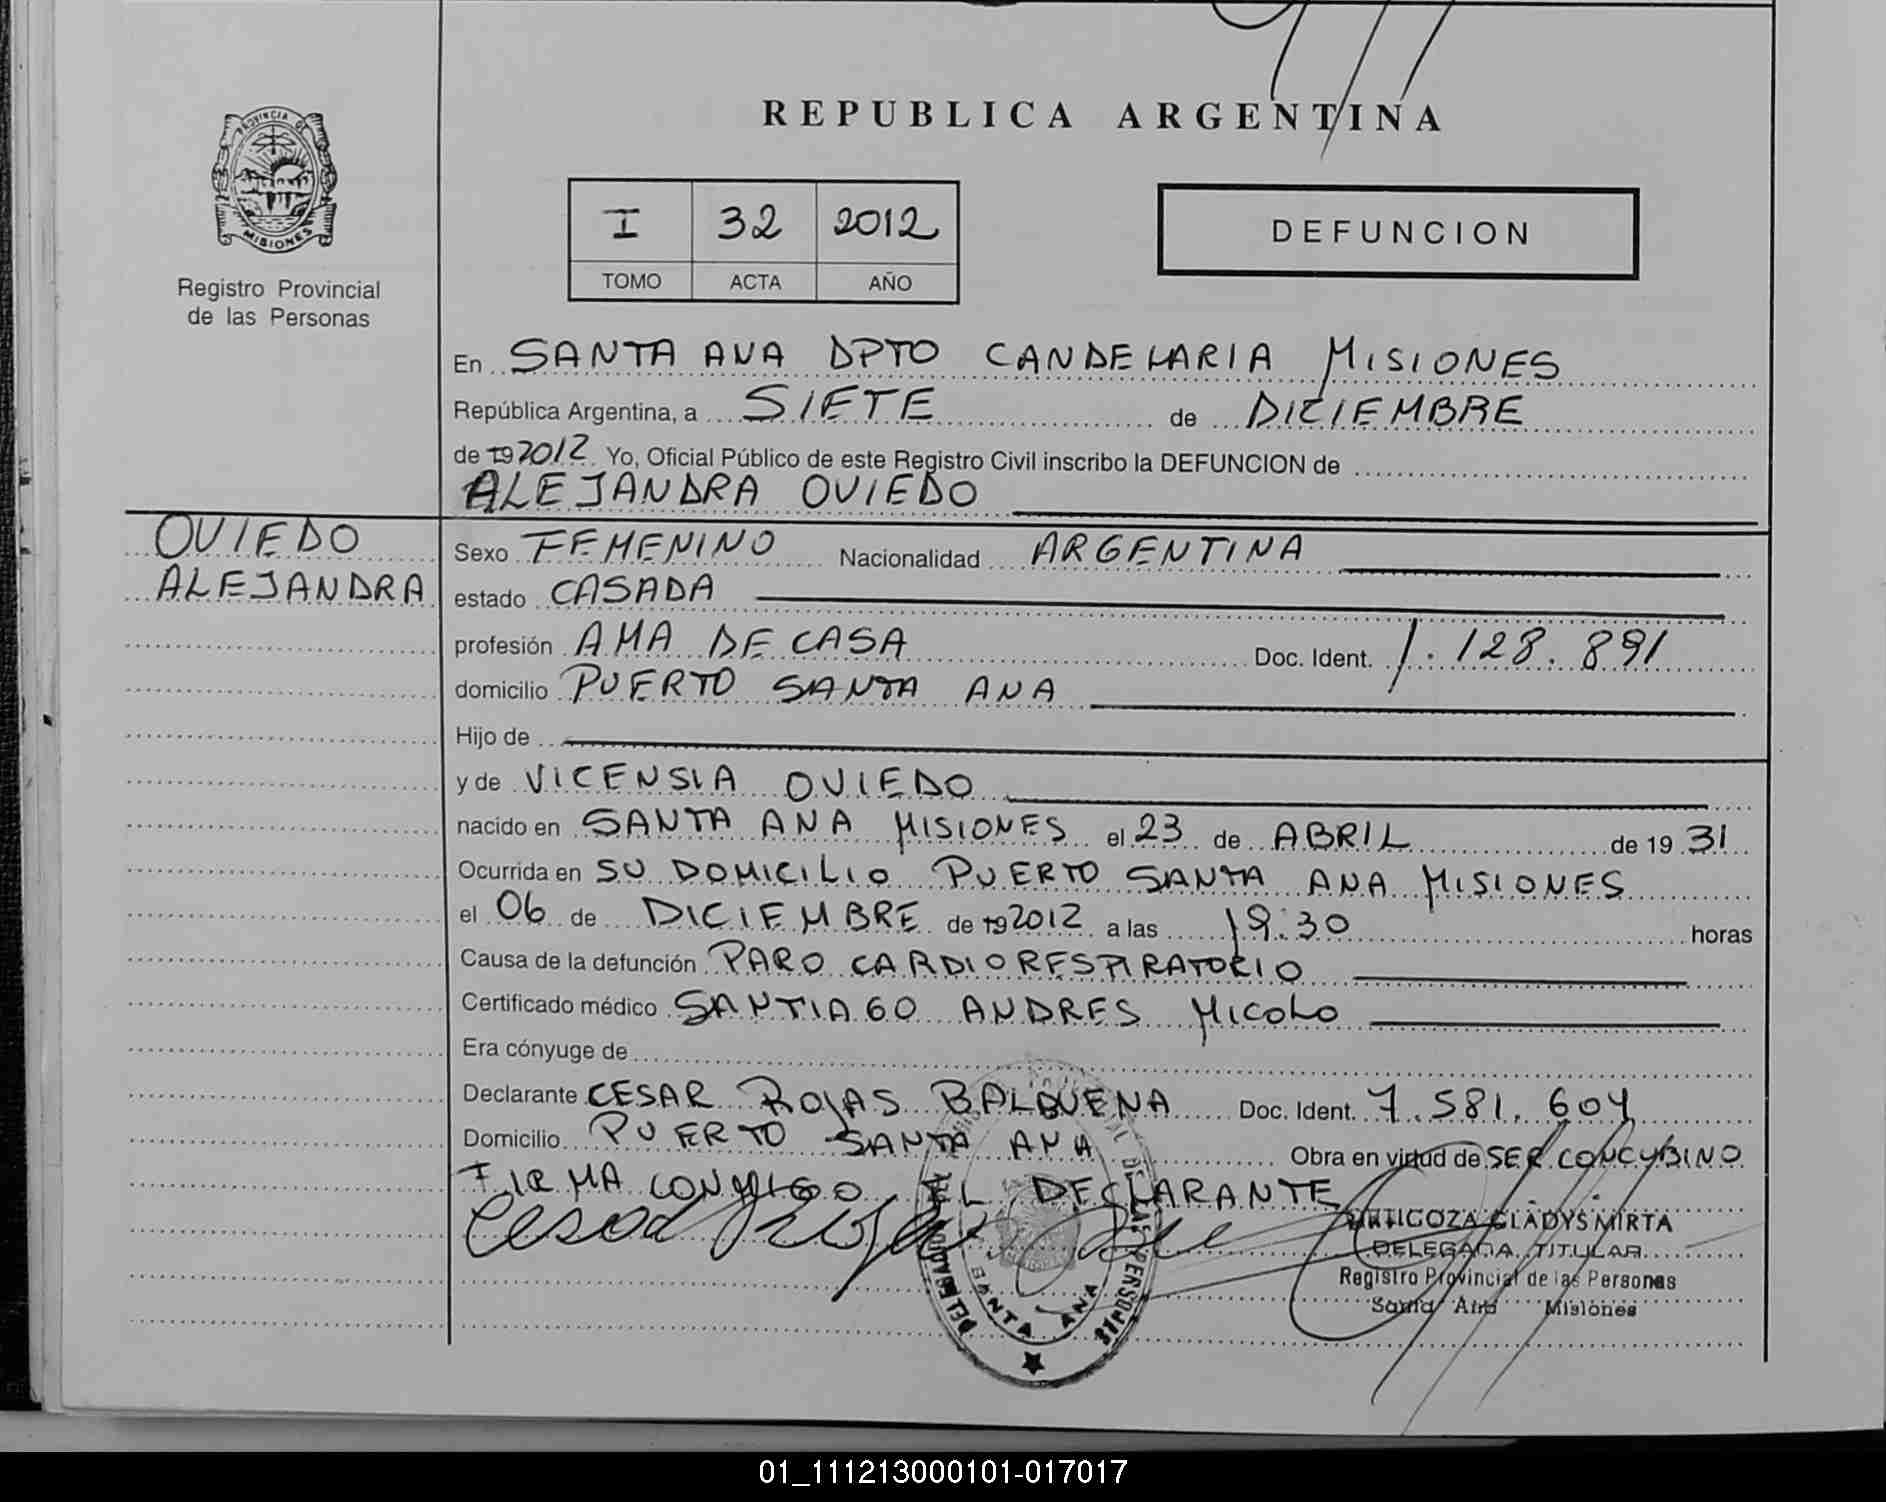 REPUBLICA ARGENTINA
PROVINCIA DE
MISIONES
Registro Provincial
de las Personas
I 32 2012
TOMO ACTA AÑO
DEFUNCION
En SANTA ANA DPTO CANDELARIA MISIONES
República Argentina, a SIETE de DICIEMBRE
de 19 2012 Yo, Oficial Público de este Registro Civil inscribo la DEFUNCION de
ALEJANDRA OVIEDO
OVIEDO
ALEJANDRA
Sexo FEMENINO Nacionalidad ARGENTINA
estado CASADA
profesión AMA DE CASA Doc. Ident. 1.128.891
domicilio PUERTO SANTA ANA
Hijo de
y de VICENSIA OVIEDO
nacido en SANTA ANA MISIONES el 23 de ABRIL de 19 31
Ocurrida en SU DOMICILIO PUERTO SANTA ANA MISIONES
el 06 de DICIEMBRE de 19 2012 a las 19:30 horas
Causa de la defunción PARO CARDIORESPIRATORIO
Certificado médico SANTIAGO ANDRES MICOLO
Era cónyuge de
Declarante CESAR ROJAS BALBUENA Doc. Ident. 7.581.604
Domicilio PUERTO SANTA ANA Obra en virtud de SER CONCUBINO
FIRMA CONMIGO EL DECLARANTE
URTIGOZA GLADYS MIRTA
DELEGADA TITULAR
Registro Provincial de las Personas
Santa Ana Misiones
SANTA ANA
01_111213000101-017017